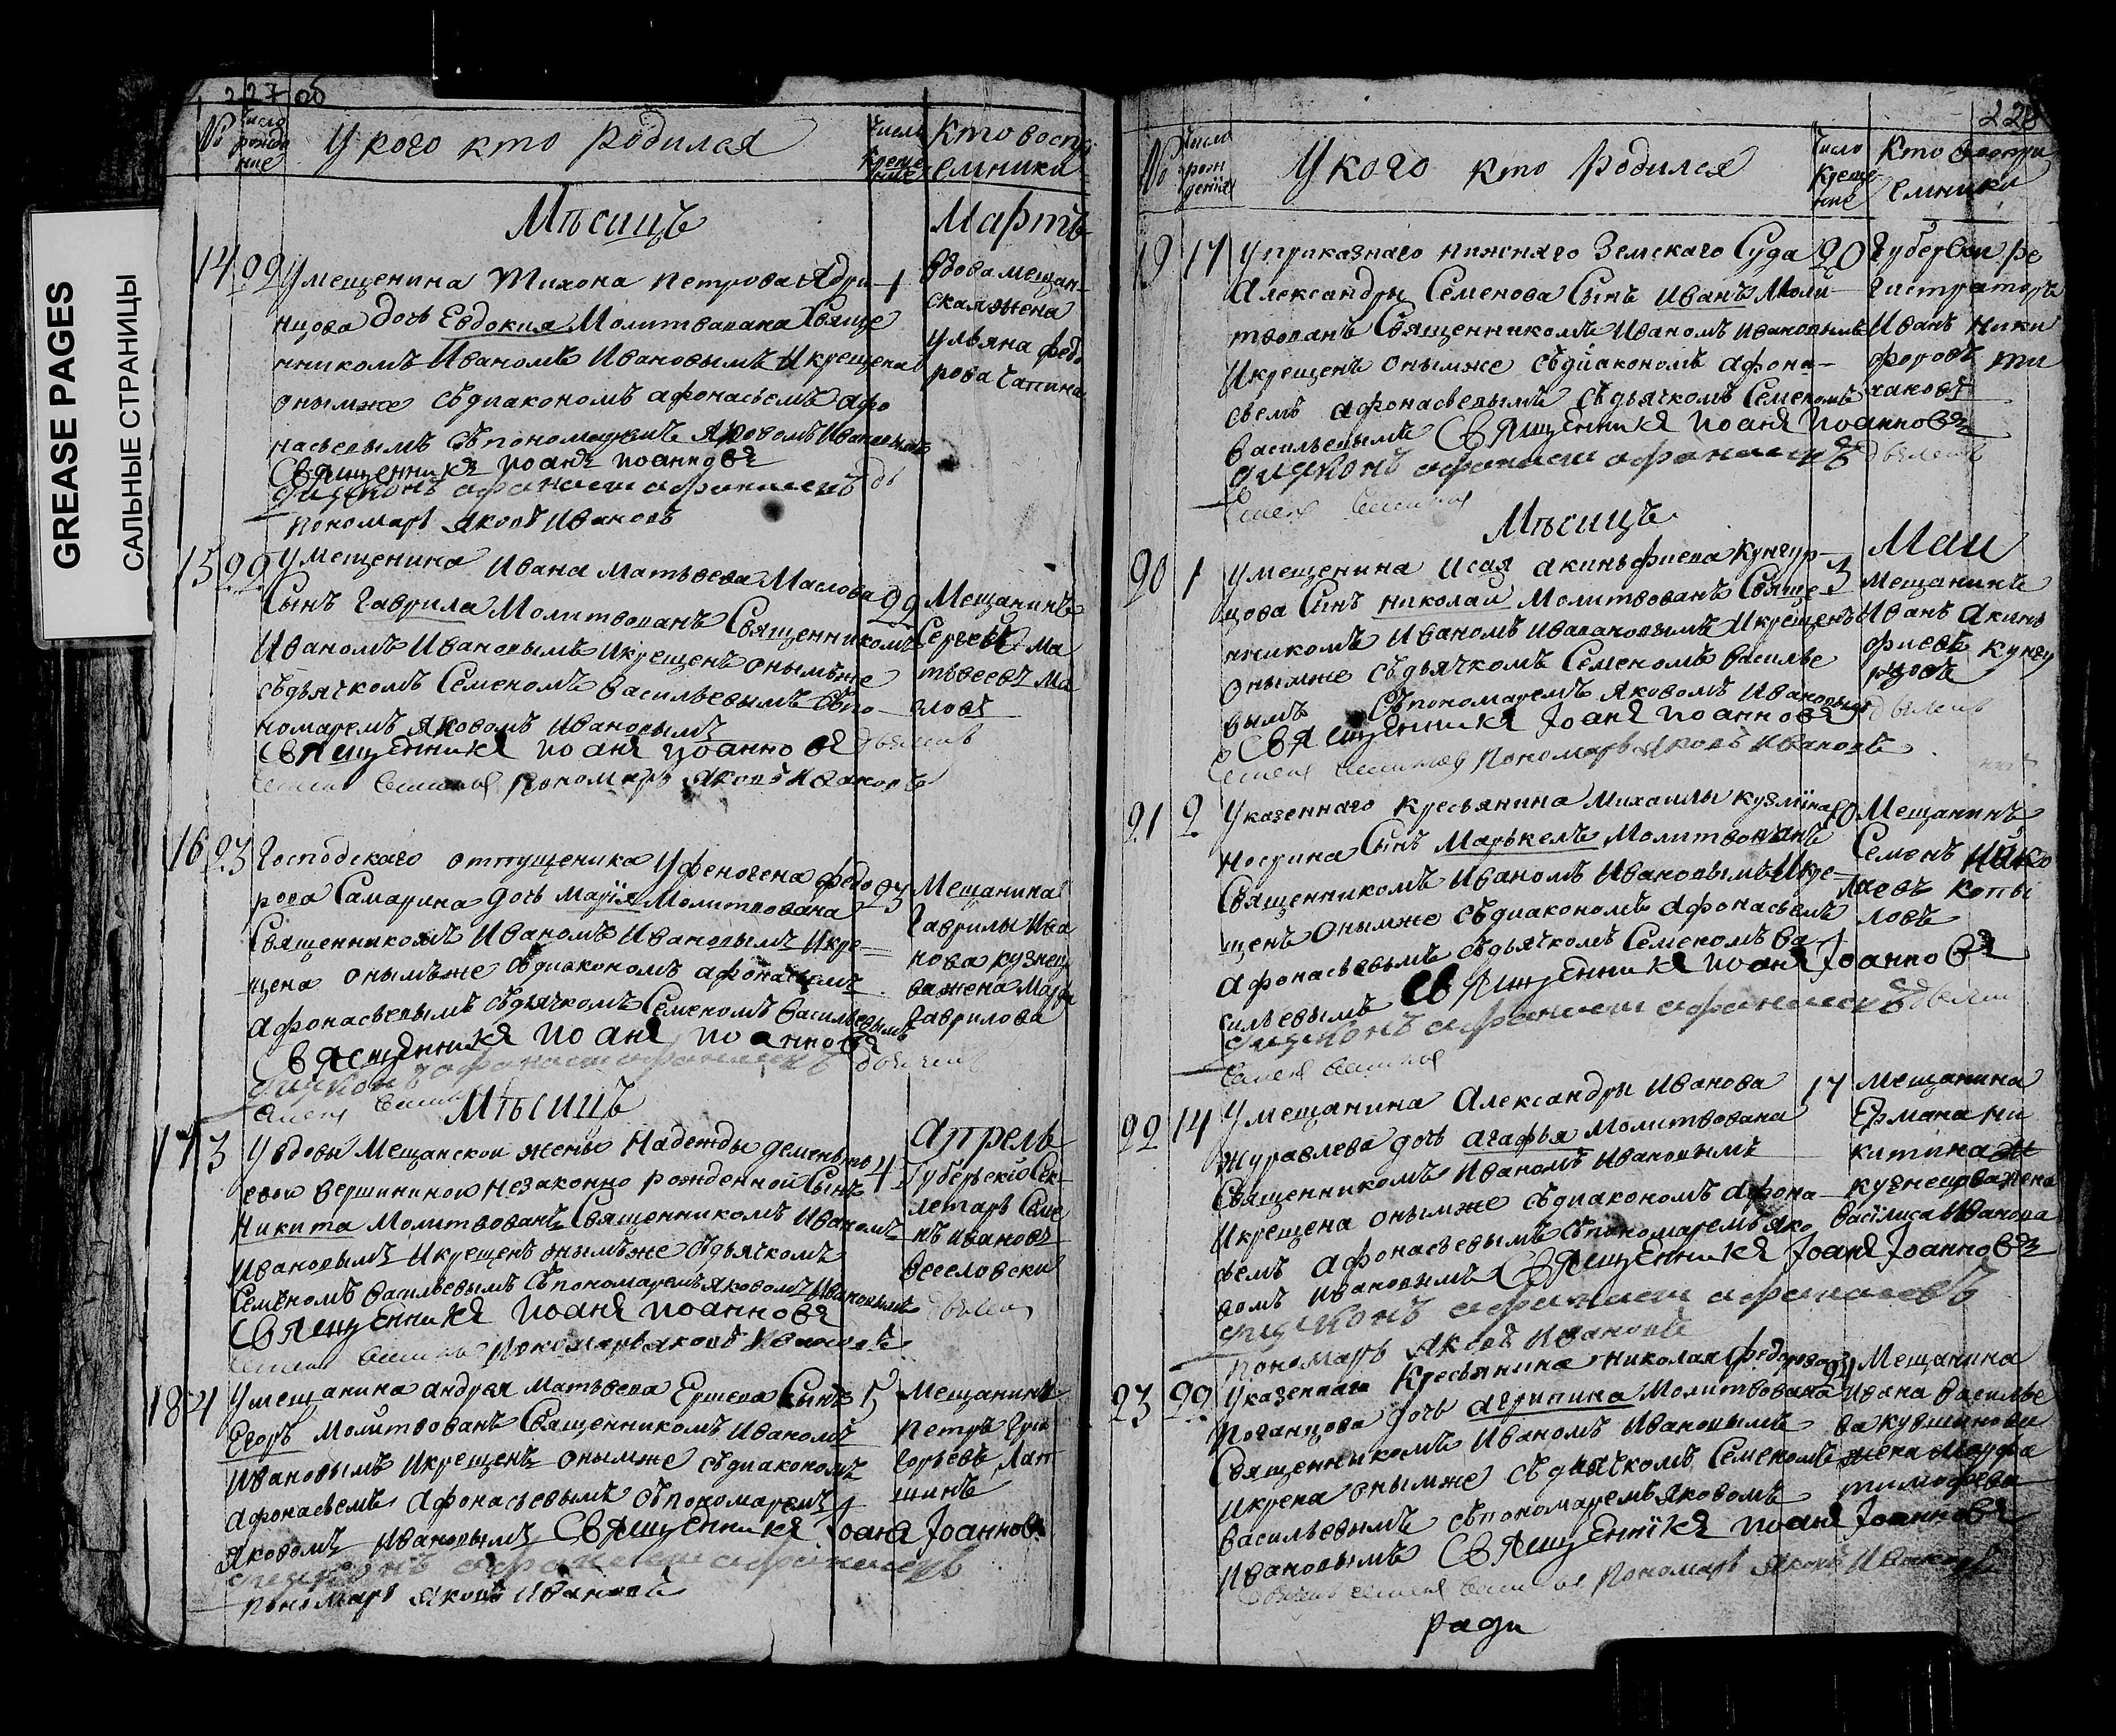 GREASE PAGES
САЛЬНЫЕ СТРАНИЦЫ
227 об
№
число рожде ние
У кого кто родился
Число креще ние
Кто воспри емники
Мѣсяцъ Мартъ
14 22 У мещенина Тихона Петрова Ядри 1
нцова дочь Евдокия Молитвавана Свяще
нникомъ Иваномъ Ивановымъ И крещена
онымже съ диакономъ афонасьемъ афо
насьевымъ съ пономаремъ Яковомъ Ивановымъ
Священникъ Иоанъ Иоанновъ
диаконъ афонасеи афонасевъ
пономарь Яковъ Ивановъ
вдова мещан
ская жена
Ульяна федо
рова Чапина
15 22 У мещенина Ивана Матвѣева Маслова 22
Сынъ Гаврила Молитвованъ Священникомъ
Иваномъ Ивановымъ И крещенъ онымъже
съ дьячкомъ Семеномъ Васильевымъ съ по
номаремъ Яковомъ Ивановымъ
Священникъ Иоанъ Иоанновъ
пономарь Яковъ Ивановъ
Мещанинъ
Сергей Ма
твѣевъ Ма
словъ
16 23 Господскаго отпущеника Уфеногена федо 23
рова Самарина дочь Марїя Молитвована
Священникомъ Иваномъ Ивановымъ И кре
щена онымъже съ диакономъ афонасьемъ
афонасьевымъ съ дьячкомъ Семеномъ Васильевымъ
Священникъ Иоанъ Иоанновъ
диаконъ афонасеи афонасевъ
Мещанина
Гаврилы Ива
нова кузнец
ва жена Марфа
Гаврилова
Мѣсяцъ Апрель
17 3 У вдовы Мещанскои жены Надежды деменьть 4
евои Вершининои незаконно рожденной Сынъ
Никита Молитвованъ Священникомъ Иваномъ
Ивановымъ И крещенъ онымъже съ дьячкомъ
Семеномъ Васильевымъ съ пономаремъ Яковомъ Ивановымъ
Священникъ Иоанъ Иоанновъ
пономарь Яковъ Ивановъ
Губерьскїо Сек
летарь Семе
нъ Ивановъ
Веселовски
18 4 У мещанина андрея Матвѣева Ершева Сынъ 5
Егоръ Молитвованъ Священникомъ Иваномъ
Ивановымъ И крещенъ онымже съ диакономъ
Афонасьемъ Афонасьевымъ съ пономаремъ
Яковомъ Ивановымъ Священникъ Иоанъ Иоанновъ
диаконъ афонасеи афонасевъ
пономарь Яковъ Ивановъ
Мещанинъ
Петръ Григ
горьевъ Лап
шинъ
228
№
Число рож дения
У кого кто родился
Число креще ние
Кто воспри емники
19 17 У приказнаго нижняго Земскаго Суда 20
Александры Семенова Сынъ Иванъ Моли
твованъ Священникомъ Иваномъ Ивановымъ
И крещенъ онымже съ диакономъ афона
сьемъ афонасьевымъ съ дьячкомъ Семеномъ
Васильевымъ Священникъ Иоанъ Иоанновъ
диаконъ афонасеи афонасевъ
Губерьски ре
гистраторъ
Иванъ Ники
форовъ ти
хановъ
Мѣсяцъ Маи
20 1 У мещенина Исая Акиньфиева Кунгур 3
цова Сынъ Николаи Молитвованъ Свяще
нникомъ Иваномъ Ивановымъ И крещенъ
онымже съ дьячкомъ Семеномъ Василье
вымъ съ пономаремъ Яковомъ Ивановымъ
Священникъ Иоанъ Иоанновъ
пономарь Яковъ Ивановъ
Мещанинъ
Иванъ Акинь
фиевъ Кунгу
рцовъ
21 2 У казеннаго кресьянина Михаилы Кузмина 10
Носрина Сынъ Марькелъ Молитвованъ
Священникомъ Иваномъ Ивановымъ И кре
щенъ онымже съ диакономъ афонасьемъ
афонасьевымъ съ дьячкомъ Семеномъ Ва
сильевымъ Священникъ Иоанъ Иоанновъ
диаконъ афонасеи афонасевъ
Мещанинъ
Семенъ Нико
лаевъ Копы
ловъ
22 14 У мещанина Александры Иванова 17
Журавлева дочь агафья Молитвована
Священникомъ Иваномъ Ивановымъ
И крещена онымже съ диакономъ афона
сьемъ Афонасьевымъ съ пономаремъ Яко
вомъ Ивановымъ Священникъ Иоанъ Иоанновъ
диаконъ афонасеи афонасевъ
пономарь Яковъ Ивановъ
Мещанина
Ермана Ни
китина
кузнецова жена
Василиса Иванова
23 22 У казеннага Кресьянина Николая федорова
Поганцова дочь агрипина Молитвована
Священникомъ Иваномъ Ивановымъ
и крена онымже съ дьячкомъ Семеномъ
Васильевымъ съ пономаремъ Яковомъ
Ивановымъ Священникъ Иоанъ Иоанновъ
пономарь Яковъ Ивановъ
Мещанина
Ивана Василье
ва кувшинова
жена Марфа
тимофева
ради